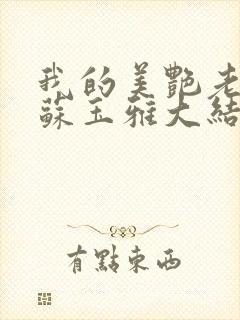 我的美艷老
蘇玉雅大結
有點東西